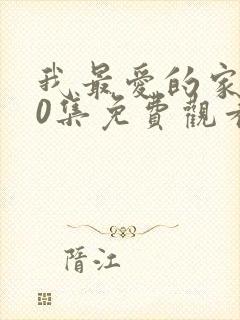 我最愛的家
0集免費觀看
晉江